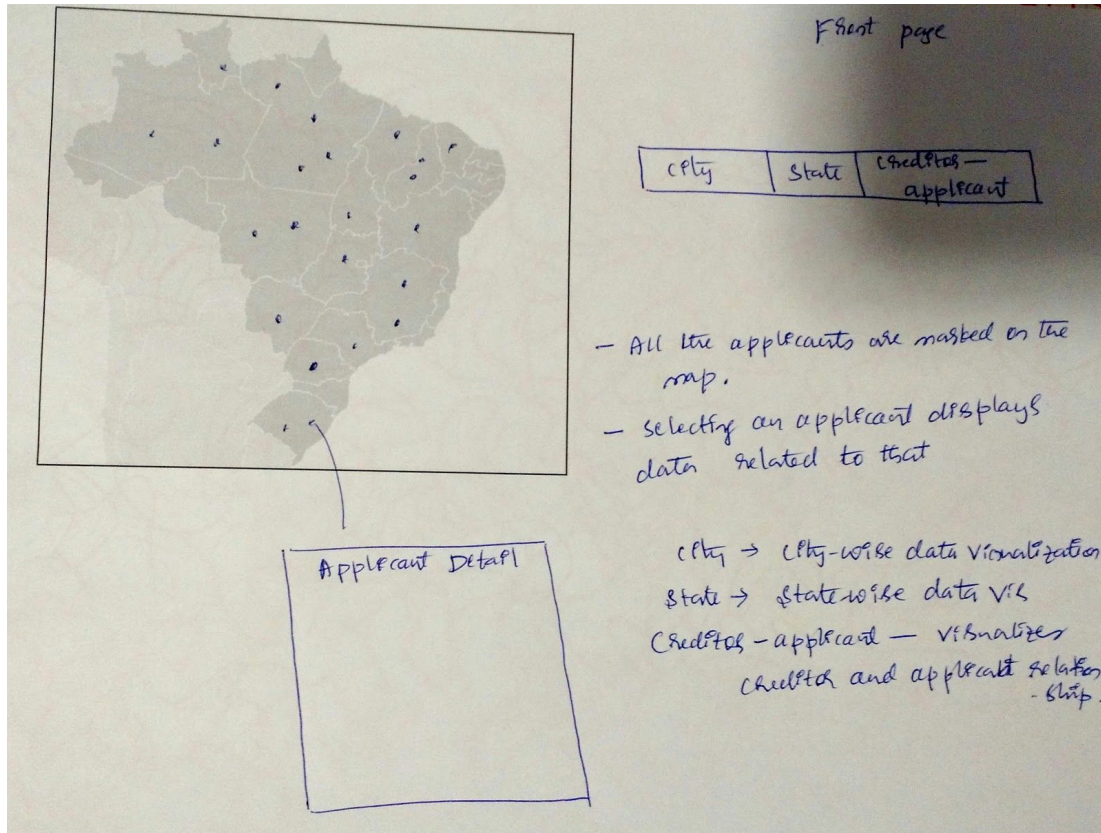 Front page
City
State
Creditor-
applicant
- All the applicants are marked on the
map.
- selecting an applicant displays
data related to that
Applicant Detail
City → City-wise data visualization
State → State-wise data vis
Creditor-applicant - visualizes
creditor and applicant relation
-ship.